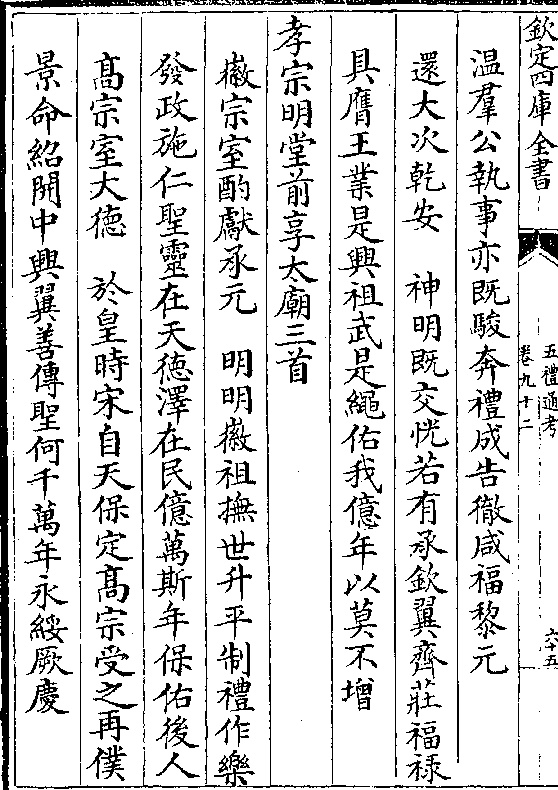 欽定四庫全書
五禮通考
卷九十二
六十五
溫羣公執事亦既駿奔禮成告徹咸福黎元
還大次乾安　神明既交恍若有承欽翼齊莊福祿
具膺王業是興祖武是繩佑我億年以莫不增
孝宗明堂前享太廟三首
徽宗室酌獻承元　明明徽祖撫世升平制禮作樂
發政施仁聖靈在天德澤在民億萬斯年保佑後人
髙宗室大德　於皇時宋自天保定髙宗受之再僕
景命紹開中興翼善傳聖何千萬年永綏厥慶